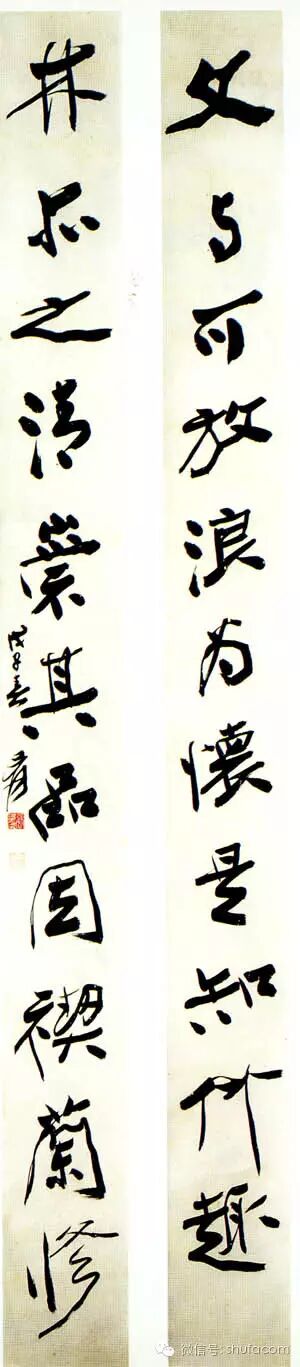 文与可放浪为懷是知竹趣
林亦之清崇其品因禊蘭修
戊子春 爰
微信号: shufacom